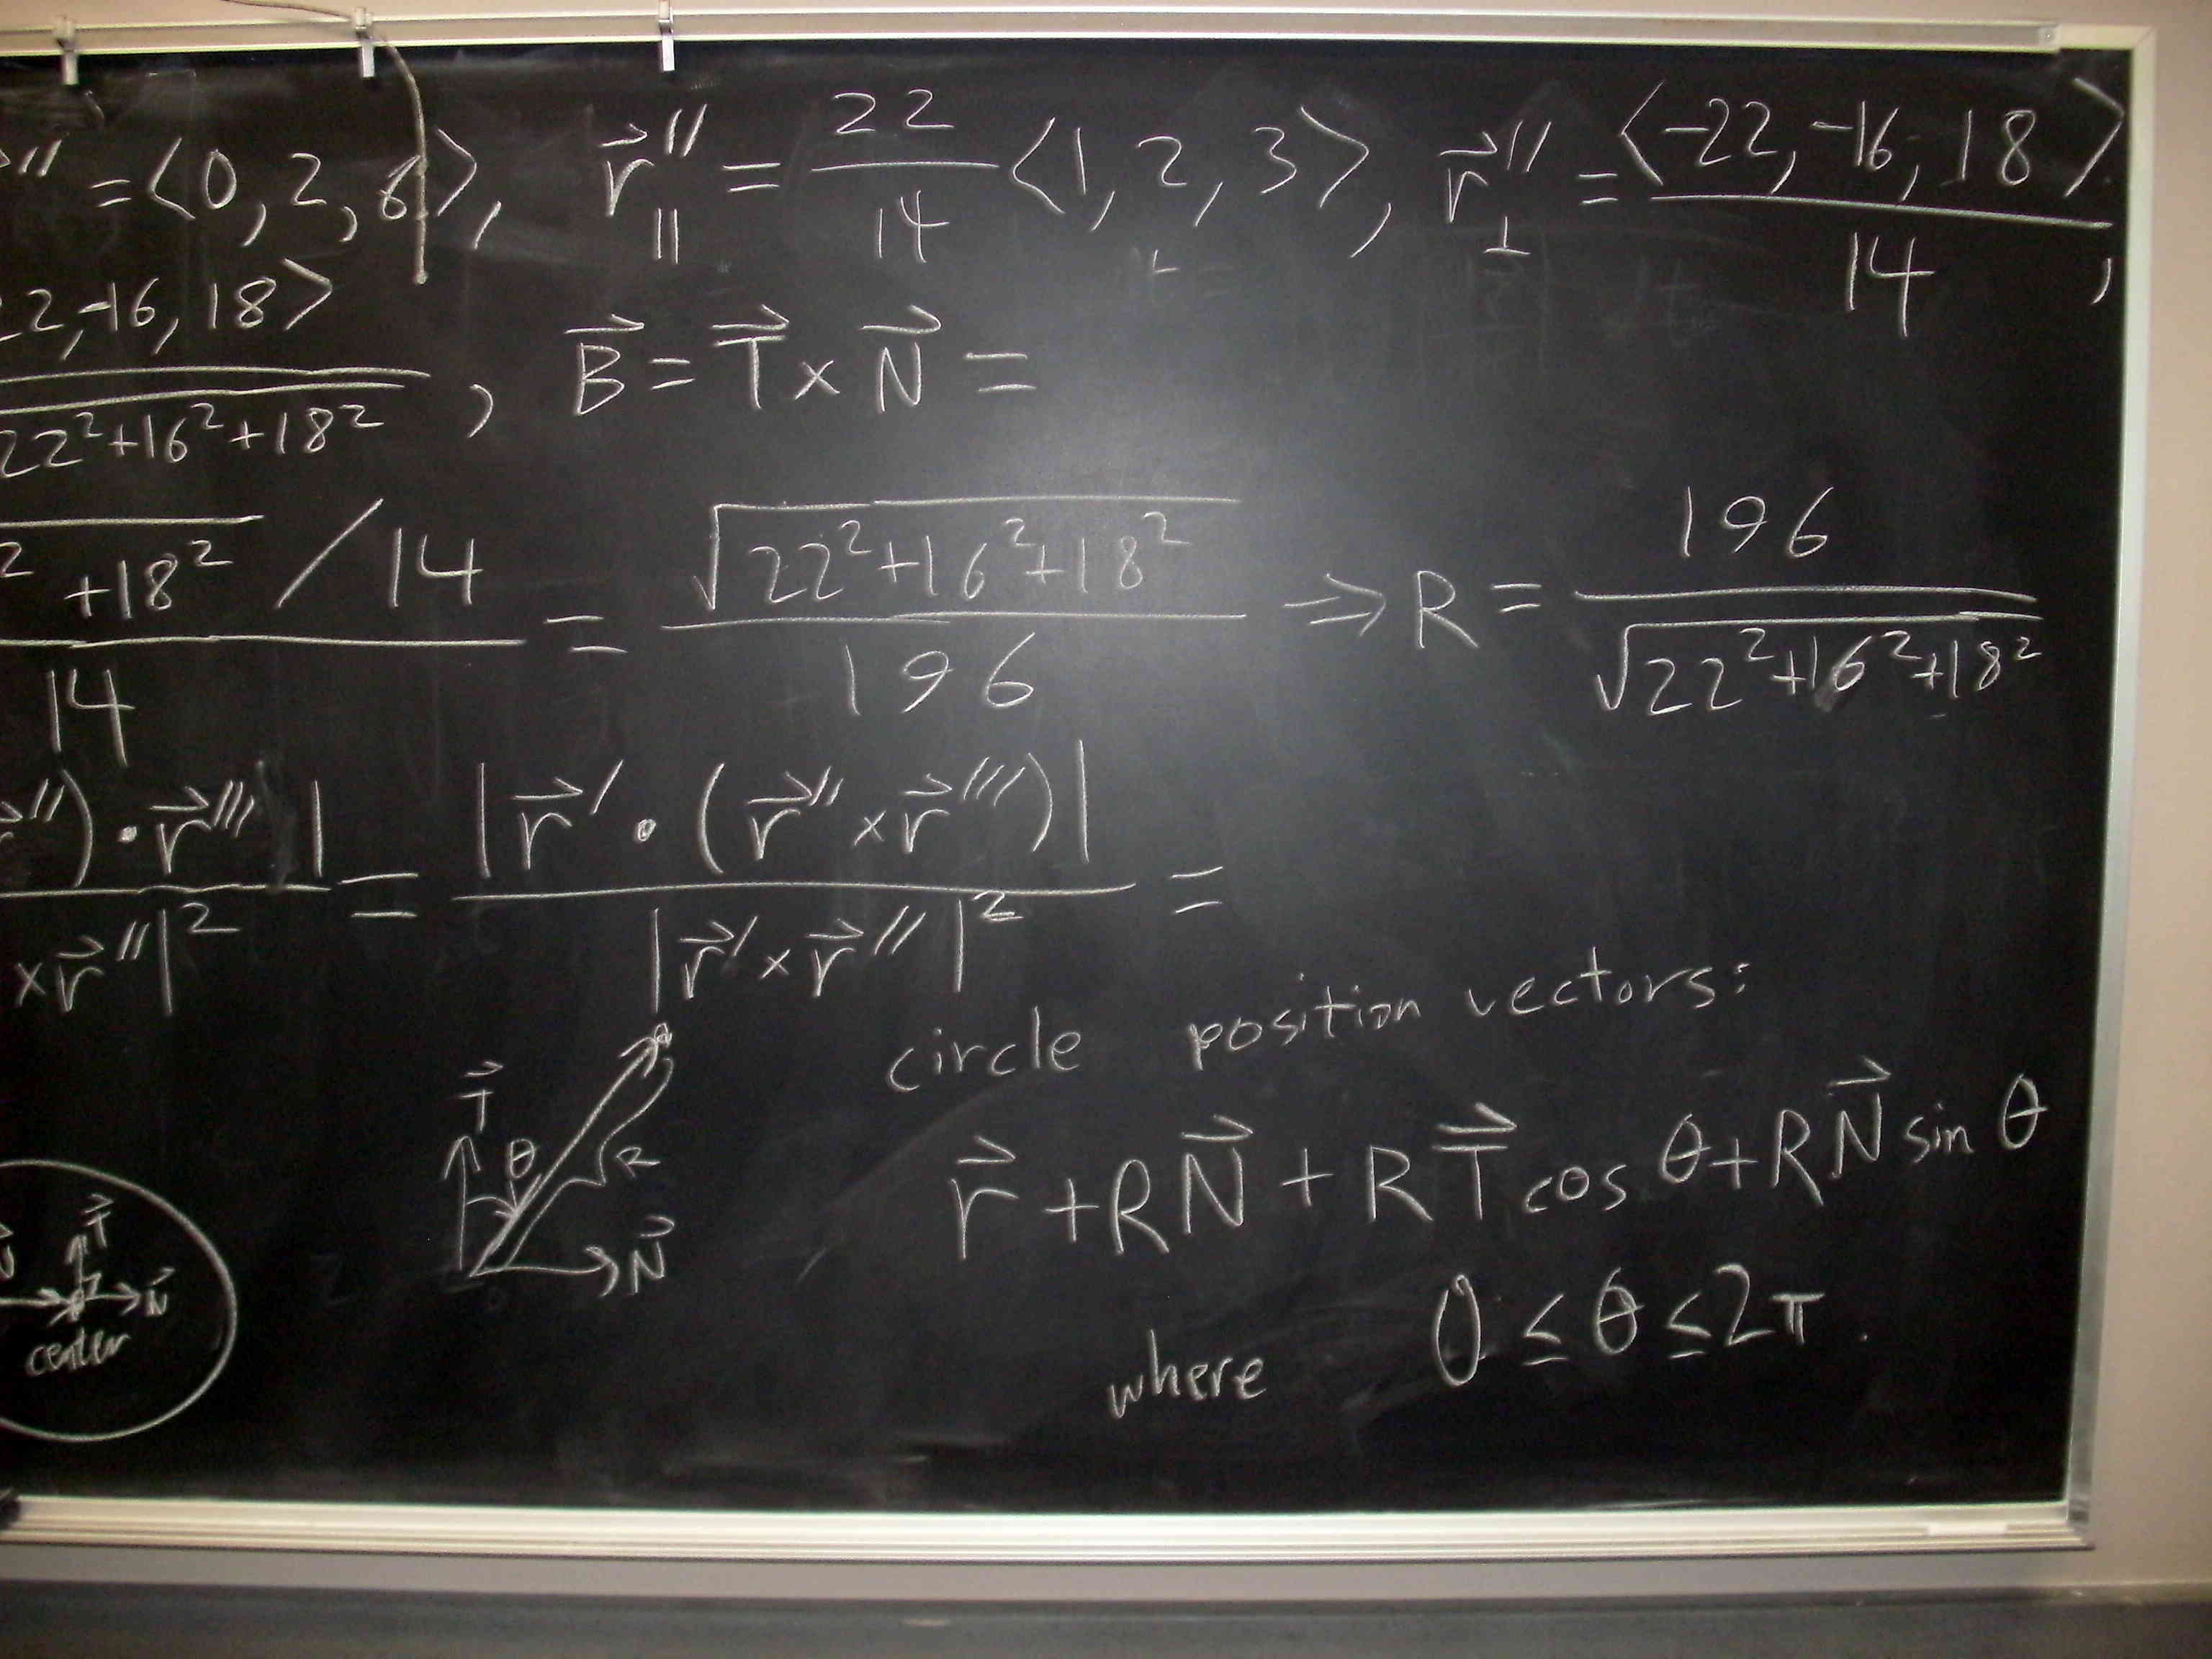 r⃗″ = ⟨0, 2, 6⟩, r⃗″∥ = 22/14 ⟨1, 2, 3⟩, r⃗″⊥ = ⟨-22, -16, 18⟩/14,
22, -16, 18⟩ / 22²+16²+18², B⃗ = T⃗ × N⃗ =
² +18² / 14 / 14 = √(22²+16²+18²) / 196 ⇒ R = 196 / √(22²+16²+18²)
r⃗″) · r⃗‴| / × r⃗″|² = |r⃗′ · (r⃗″ × r⃗‴)| / |r⃗′ × r⃗″|² =
circle position vectors:
r⃗ + RN⃗ + RT⃗ cos θ + RN⃗ sin θ
where 0 ≤ θ ≤ 2π.
T⃗ θ R N⃗
N⃗ T⃗ N⃗
center